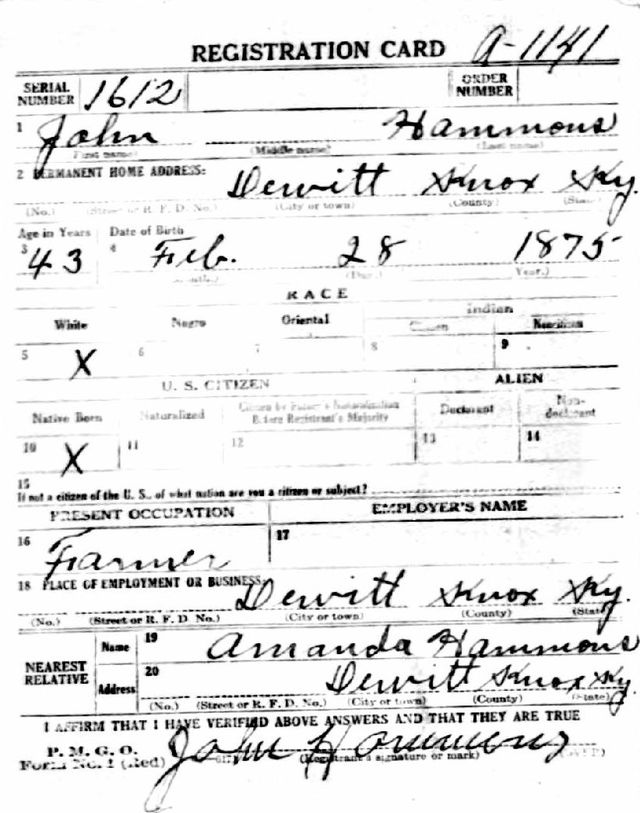 REGISTRATION CARD A-1141
SERIAL NUMBER 1612 ORDER NUMBER
1 John Hammons
(First name) (Middle name) (Last name)
2 PERMANENT HOME ADDRESS: Dewitt Knox Ky.
(No.) (Street or R. F. D. No.) (City or town) (County) (State)
Age in Years Date of Birth
3 43 4 Feb. 28 1875
(Day.) (Year.)
RACE
White Negro Oriental Indian
Citizen Noncitizen
5 X 6 7 8 9
U. S. CITIZEN ALIEN
Native Born Naturalized Citizen by Father's Naturalization Before Registrant's Majority Declarant Non-declarant
10 X 11 12 13 14
15
If not a citizen of the U. S., of what nation are you a citizen or subject?
PRESENT OCCUPATION EMPLOYER'S NAME
16 Farmer 17
18 PLACE OF EMPLOYMENT OR BUSINESS: Dewitt Knox Ky.
(No.) (Street or R. F. D. No.) (City or town) (County) (State)
NEAREST RELATIVE Name 19 Amanda Hammons
Address 20 Dewitt Knox Ky
(No.) (Street or R. F. D. No.) (City or town) (County) (State)
I AFFIRM THAT I HAVE VERIFIED ABOVE ANSWERS AND THAT THEY ARE TRUE
P. M. G. O.
Form No. 1 (Red) John Hammons
(Registrant's signature or mark) (OVER)